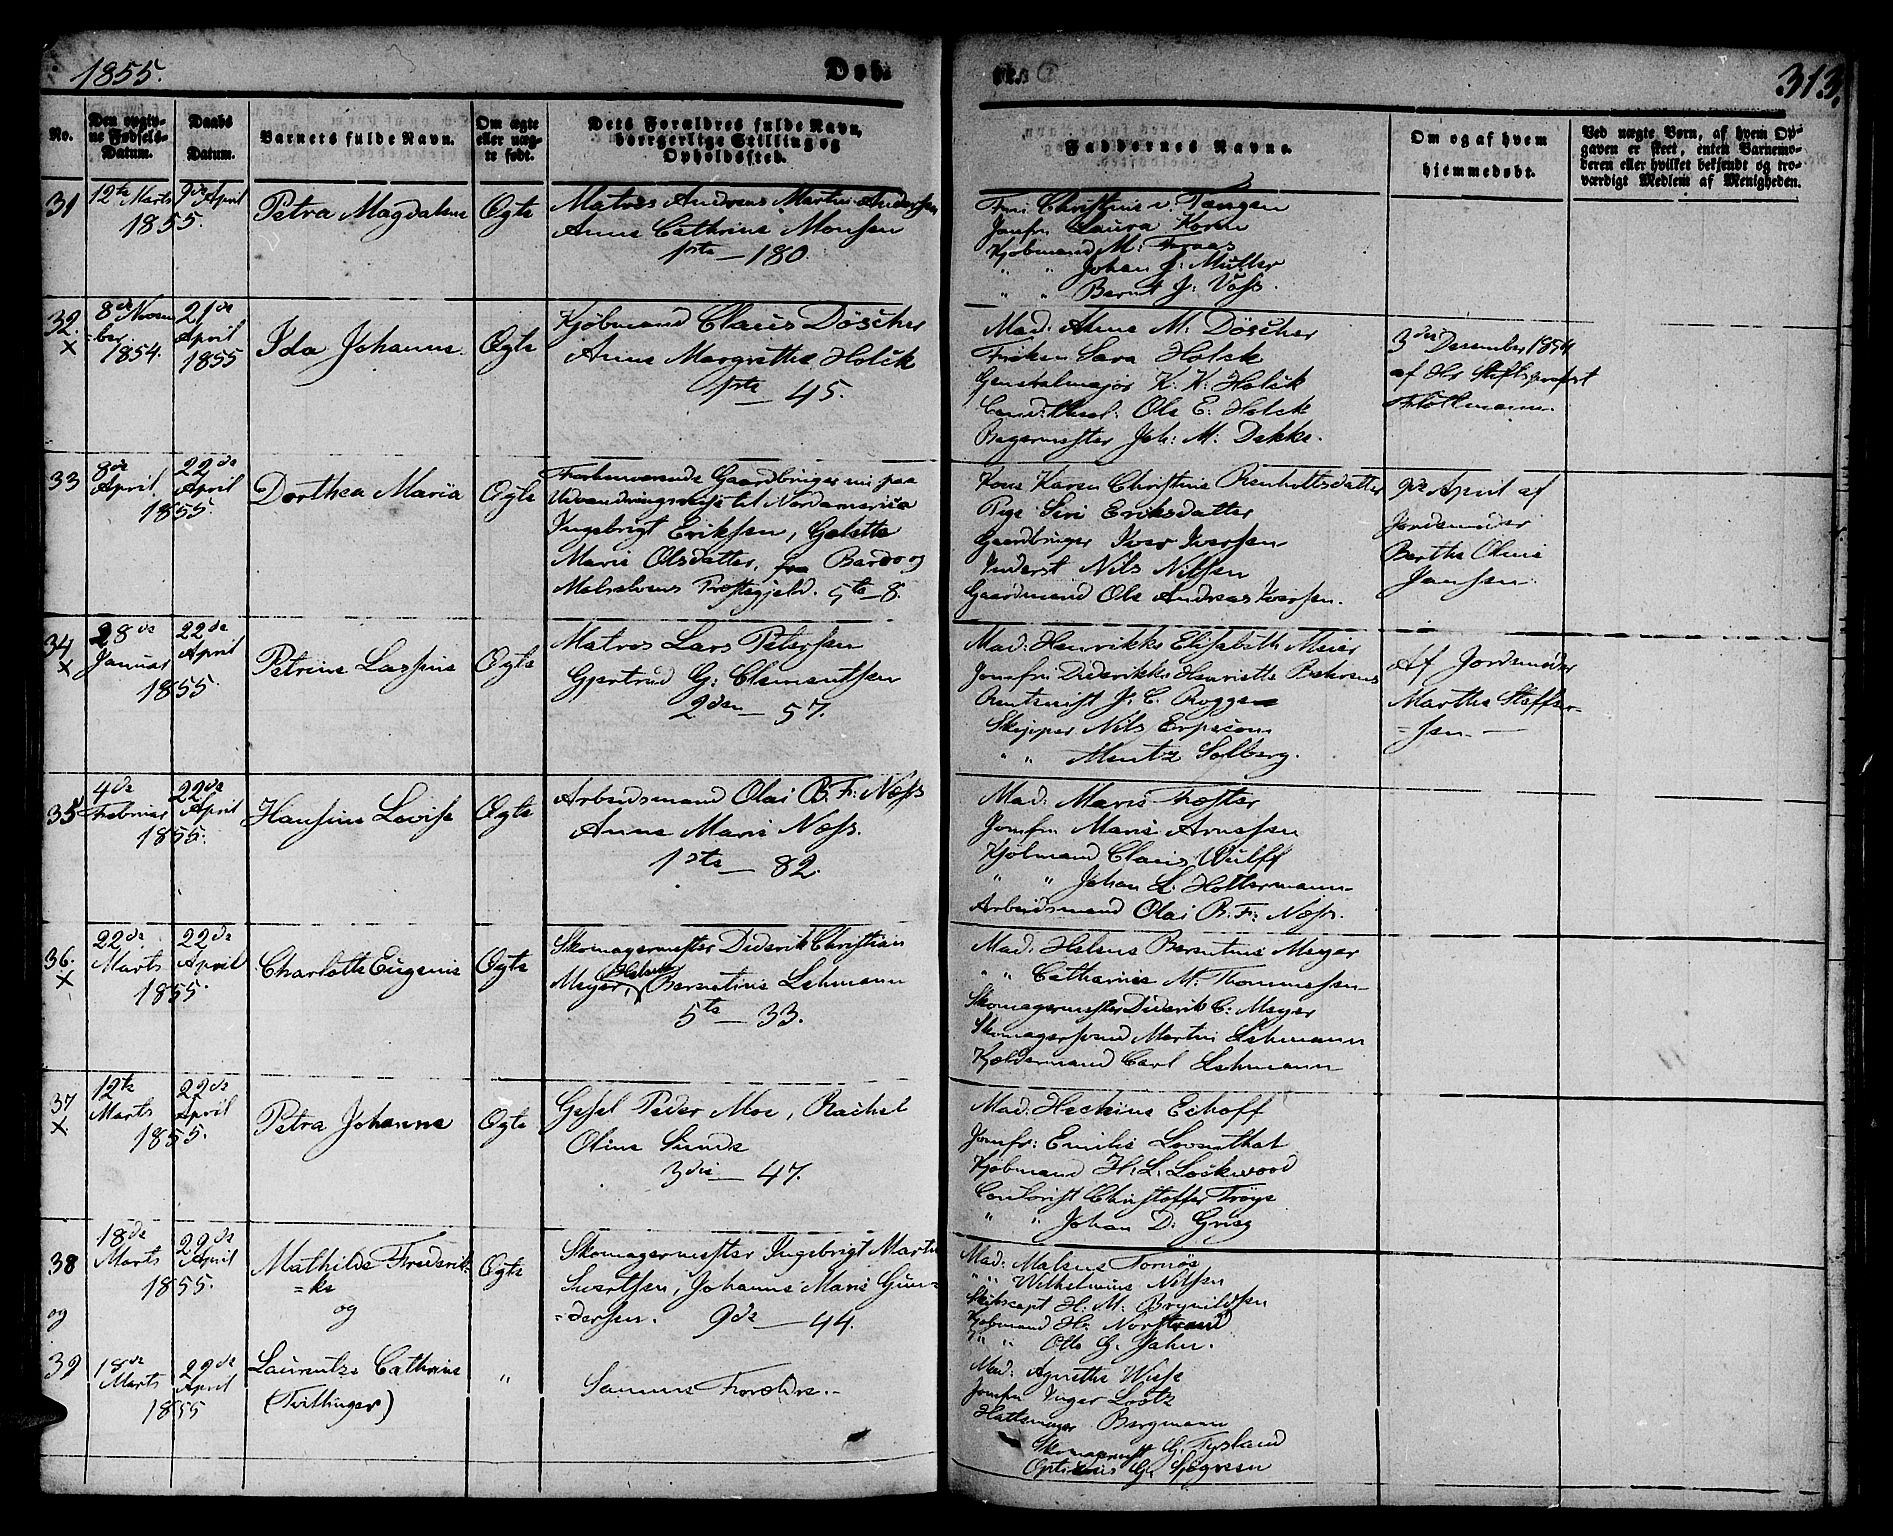 1855.
Døb.
313.
No.
Den opgiv-
ne Fødsels-
Datum.
Daabs
Datum.
Barnets fulde Navn.
Om ægte
eller uæg-
te født.
Dets Forældres fulde Navn,
borgerlige Stilling og
Opholdssted.
Faddernes Navne.
Om og af hvem
hjemmedøbt.
Ved uægte Børn, af hvem Op-
gaven er skeet, enten Barnemo-
deren eller hvilket bekjendt og tro-
værdigt Medlem af Menigheden.
31
12te Marts
1855.
9de April
Petra Magdalene
Ægte
Matros Andreas Martin Andersen
Anne Cathrine Monsen
1ste — 180.
Fru Christine v. Tangen
Jomfru Laura Koren
Kjøbmand M. Fraas
" " Johan J: Müller
" " Bernt J: Voss.
32.
×
8de Novem
=ber
1854.
21de
April
1855
Ida Johanne.
Ægte
Kjøbmand Claus Döscher
Anne Margrethe Holck
1ste — 45.
Mad: Anne M. Döscher
Frøken Sara Holck
Generalmajor K. K: Holck
Cand: theol: Ole E: Holck
Bagermester Joh: M. Dekke.
3die Desember 1854
af Hr Stiftsprovst
33
8de
April
1855.
22de
April
Dorthea Maria
Ægte
Forhenværende Gaardbruger nu paa
Udvandringsreise til Nordamerica
Ingebrigt Eriksen, Geletta
Marie Olsdatter, fra Bardo og
Malselvens Præstegjeld. 5te — 8.
Kone Karen Christine Renholtsdatter
Pige Siri Eriksdatter
Gaardbruger Iver Iversen
Inderst Nils Nilsen
Gaardmand Ole Andreas Iversen.
9de April af
Jordemoder
Berthe Oline
Jansen.
34
×
28de
Januar
1855.
22de
April
Petrine Lassine
Ægte
Matros Lars Petersen
Gjertrud G: Clementsen
2den — 57.
Mad: Henrikke Elisabeth Meier
Jomfru Diderikke Henriette Behrens
Rentenist J. C. Rogge
Skipper Nils Erpecom
" " Mentz Solberg.
Af Jordemoder
Marthe Steffen-
=sen —
35
4de
Februar
1855.
22de
April
Hansine Lovise
Ægte
Arbeidsmand Olai B. F: Næss
Anne Marie Næss.
1ste — 82.
Mad: Marie Fæster
Jomfru Marie Arnesen
Kjøbmand Claus Wulff
" " Johan L. Holtermann
Arbeidsmand Olai B. F: Næss.
36.
×
22de
Marts
1855.
22de
April
Charlotte Eugenie
Ægte
Skomagermester Diderik Christian
Meyer, Helene Berentine Lehmann
5te — 33.
Mad: Helene Berentine Meyer
" " Catharine M. Thommesen
Skomagermester Diderik C: Meyer
Skomagersvend Martin Lehmann
Kjeldermand Carl Lehmann
37
×
12te
Marts
1855.
22de
April
Petra Johanne
Ægte
Gesel Peder Moe, Rachel
Oline Sunde
3die — 47.
Mad: Hechine Echoff
Jomfr: Emilie Loventhal
Kjøbmand H. L. Lockwood
Contorist Christoffer Trøye
" " Johan D. Grieg
38
18de
Marts
1855.
29de
April
Mathilde Frederik-
=ke
og
Ægte
Skomagermester Ingebrigt Martin
Sivertsen, Johanne Marie Gun-
=dersen. 9de — 44.
Mad: Malene Tornøe
" " Wilhelmine Nilsen
Skibscapt H. M: Brynildsen
Kjøbmand H: Norstrand
" " Otto G. Jahn.
og
39
18de
Marts
1855
29de
April
Laurentze Cathrine
(Tvillinger)
"
Samme Forældre.
Mad: Agnethe Wiese
Jomfru Inger Lootz
Hattemager Bergmann
Skomagermest G. Tysland
Opticus G. Sjøgreen